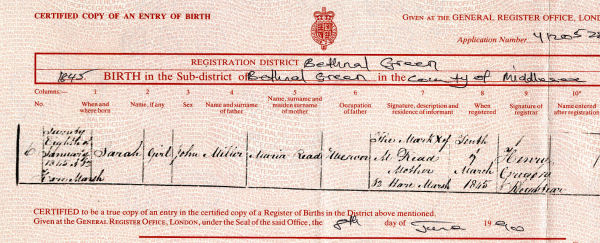 CERTIFIED COPY OF AN ENTRY OF BIRTH
GIVEN AT THE GENERAL REGISTER OFFICE, LONDO
Application Number
REGISTRATION DISTRICT Bethnal Green
1845 BIRTH in the Sub-district of Bethnal Green in the County of Middlesex
Columns:— 1 2 3 4 5 6 7 8 9 10*
No. When and where born Name, if any Sex Name and surname of father Name, surname and maiden surname of mother Occupation of father Signature, description and residence of informant When registered Signature of registrar Name entered after registration
6 Twenty Eighth of January 1845 Hare Marsh
Sarah Girl John Maria Read
The Mark X of M Read Mother 32 Hare Marsh
Tenth March 1845
Henry Gregory Registrar
CERTIFIED to be a true copy of an entry in the certified copy of a Register of Births in the District above mentioned.
Given at the GENERAL REGISTER OFFICE, LONDON, under the Seal of the said Office, the 8th day of June 1990